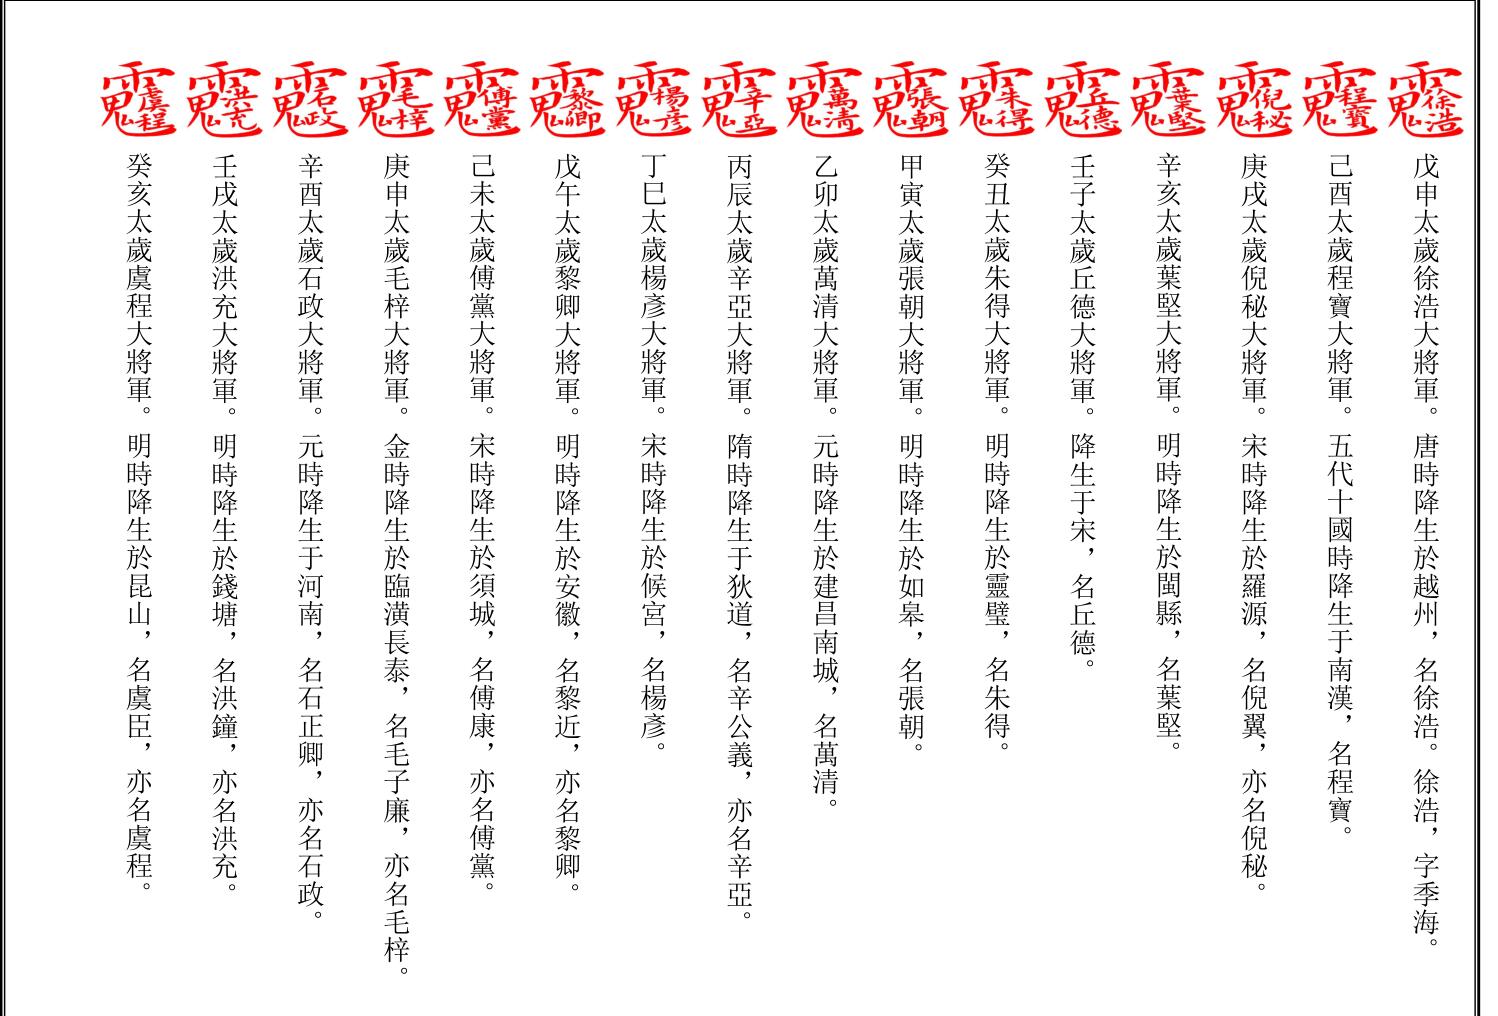 徐浩 戊申太歲徐浩大將軍。唐時降生於越州，名徐浩。徐浩，字季海。
程寶 己酉太歲程寶大將軍。五代十國時降生于南漢，名程寶。
倪秘 庚戌太歲倪秘大將軍。宋時降生於羅源，名倪翼，亦名倪秘。
葉堅 辛亥太歲葉堅大將軍。明時降生於閩縣，名葉堅。
丘德 壬子太歲丘德大將軍。降生于宋，名丘德。
朱得 癸丑太歲朱得大將軍。明時降生於靈璧，名朱得。
張朝 甲寅太歲張朝大將軍。明時降生於如皋，名張朝。
萬清 乙卯太歲萬清大將軍。元時降生於建昌南城，名萬清。
辛亞 丙辰太歲辛亞大將軍。隋時降生于狄道，名辛公義，亦名辛亞。
楊彥 丁巳太歲楊彥大將軍。宋時降生於候宮，名楊彥。
黎卿 戊午太歲黎卿大將軍。明時降生於安徽，名黎近，亦名黎卿。
傅黨 己未太歲傅黨大將軍。宋時降生於須城，名傅康，亦名傅黨。
毛梓 庚申太歲毛梓大將軍。金時降生於臨潢長泰，名毛子廉，亦名毛梓。
石政 辛酉太歲石政大將軍。元時降生于河南，名石正卿，亦名石政。
洪充 壬戌太歲洪充大將軍。明時降生於錢塘，名洪鐘，亦名洪充。
虞程 癸亥太歲虞程大將軍。明時降生於昆山，名虞臣，亦名虞程。